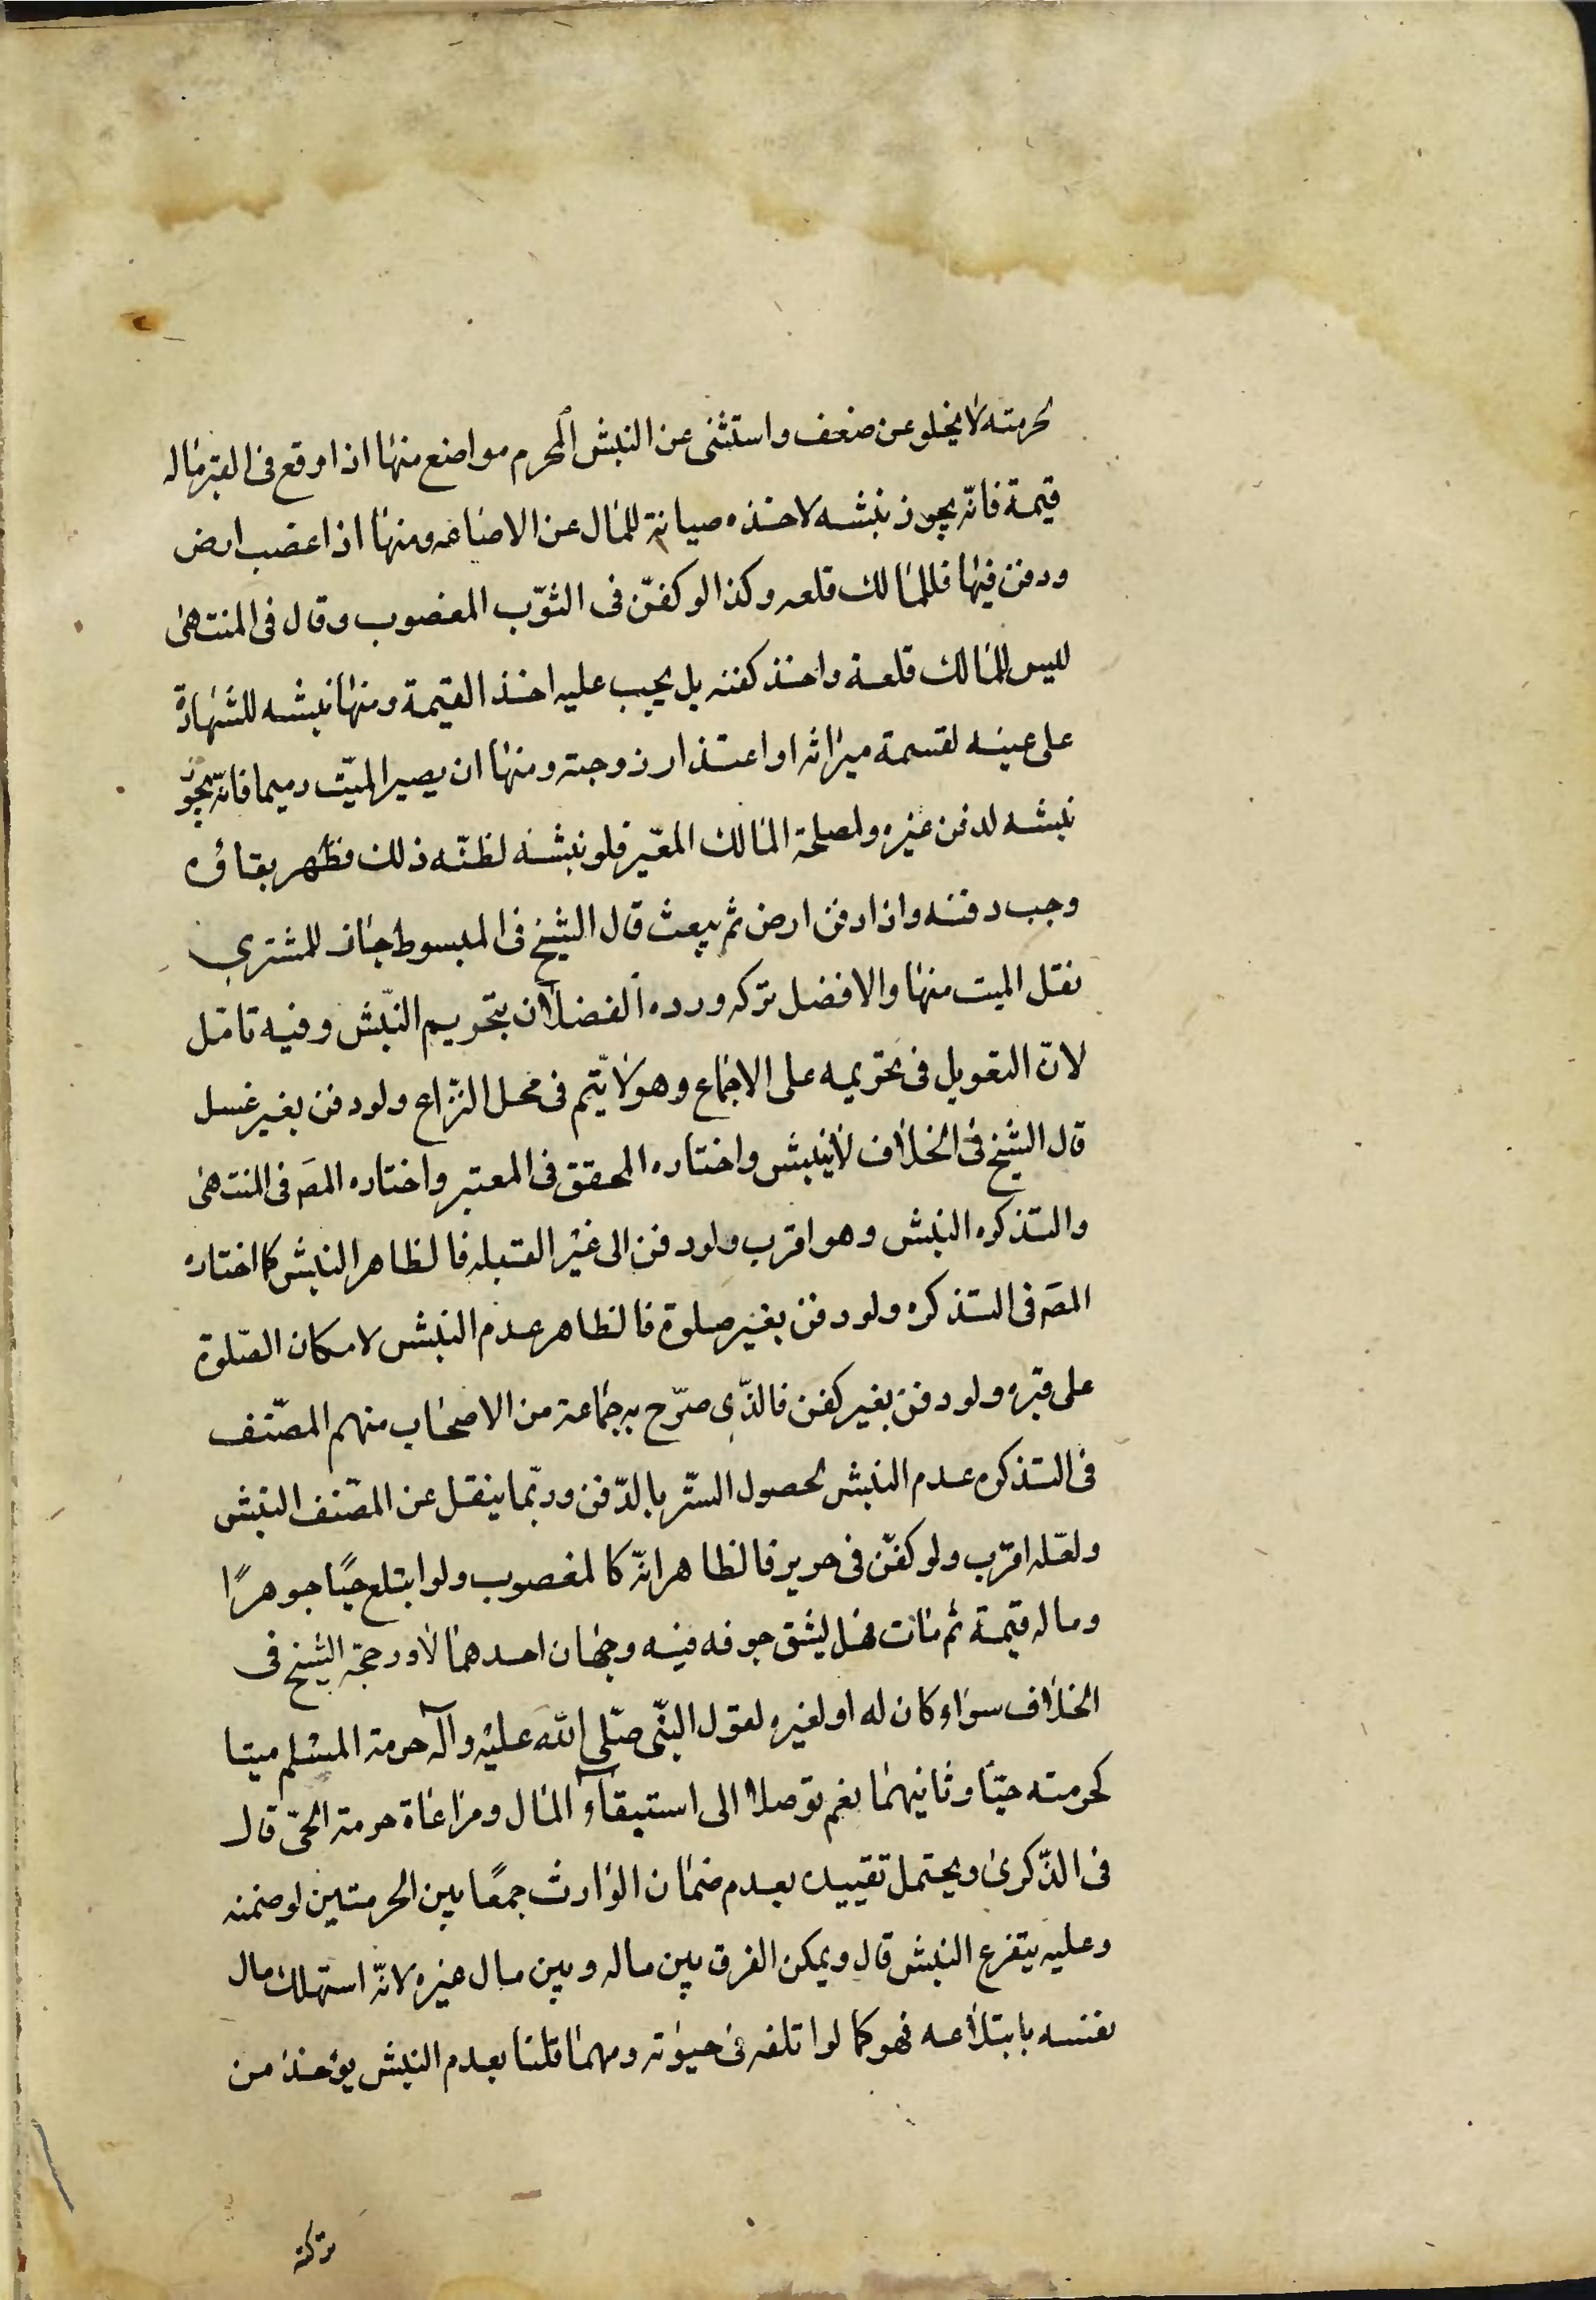 لحرمته لا يخلو عن ضعف واستثنى عن النبش المحرم مواضع منها اذا وقع فى القبر ماله
قيمة فانّه يجوز نبشه لاخذه صيانة للمال عن الاضاعه ومنها اذا غصب ارض
ودفن فيها فللمالك قلعه وكذا لو كفّن فى الثوّب المغصوب وقال فى المنتهى
ليس للمالك قلعة واخذ كفنه بل يجب عليه اخذ القيمة ومنها نبشه للشهادة
على عينه لقسمة ميراثه او اعتداد زوجته ومنها ان يصير الميّت رميما فانّه يجوز
نبشه لدفن غيره ولمصلحة المالك المعير فلو نبشه لظنّه ذلك فظهر بقاؤه
وجب دفنه واذا دفن ارض ثم بيعت قال الشيخ فى المبسوط جاز للمشتري
نقل الميت منها والافضل تركه ورده الفضلان بتحريم النّبش وفيه تامّل
لانّ التعويل فى تحريمه على الاجماع وهو لا يّتم فى محل النّزاع ولو دفن بغير غسل
قال الشيخ فى الخلاف لا ينبش واختاره المحقق فى المعتبر واختاره المصَ فى المنتهى
والتذكره النبش وهو اقرب ولو دفن الى غير القبله فالظاهر النبش كما اختاره
المصَ فى التذكره ولو دفن بغير صلوة فالظاهر عدم النبش لامكان الصّلوة
على قبره ولو دفن بغير كفن فالذّى صرّح به جماعة من الاصحاب منهم المصّنف
فى التذكره عدم النبش لحصول السّتر بالدّفن وربّما ينقل عن المصّنف النبش
ولعّله اقرب ولو كفّن فى حرير فالظاهر انّه كالمغصوب ولو ابتلع حيًا جوهرًا
وماله قيمة ثم مات فهل يشق جوفه فيه وجهان احدهما لا ورجحّه الشيخ فى
الخلاف سواء كان له او لغيره لقول النبّى صلّى الله عليه وآله حرمة المسلم ميتا
كحرمته حيّا وثانيهما نعم توصلا الى استبقاء المال ومراعاة حرمة الحىّ قال
فى الذّكرى ويحتمل تقييده بعدم ضمان الوارث جمعًا بين الحرمتين لو ضمنه
وعليه يتفرع النبش قال ويمكن الفرق بين ماله وبين مال غيره لانّه استهلك مال
نفسه بابتلاعه فهو كما لو اتلفه فى حيوته ومهما قلنا بعدم النبش يؤخذ من
تركته